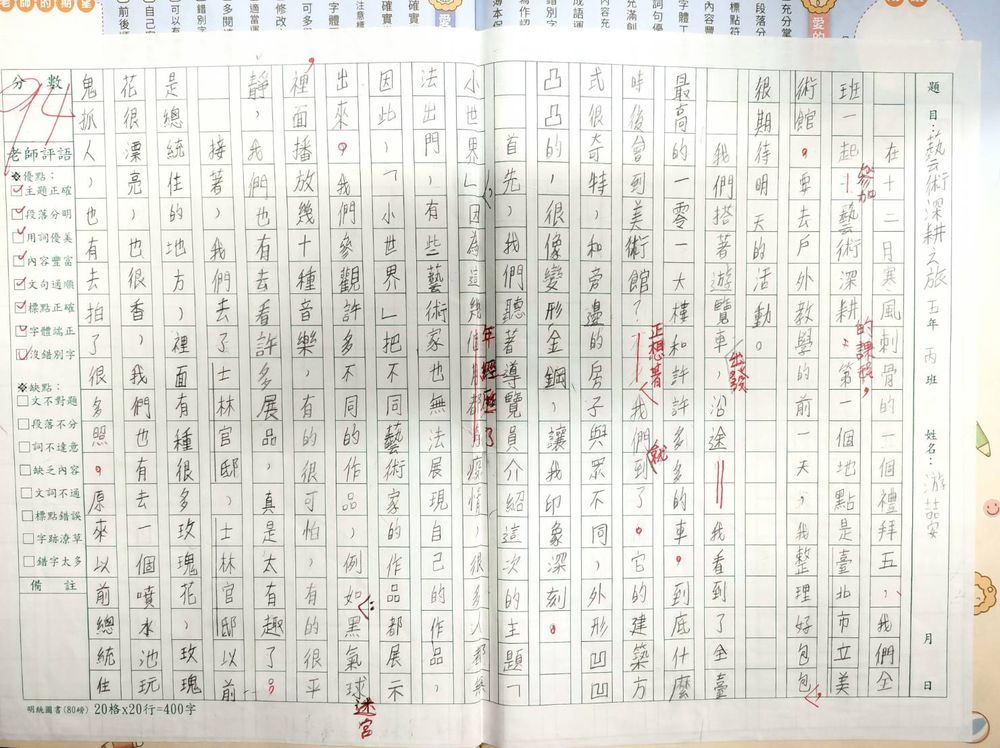 題目：藝術深耕之旅 五年丙班 姓名：游喆安 月 日
在十二日寒風刺骨的一個禮拜五，我們全
班一起參加藝術深耕的課程，第一個地點是臺北市立美
術館。要去戶外教學的前一天，我整理好包包，
很期待明天的活動。
我們搭著遊覽車出發，沿途我看到了全臺
最高的一零一大樓和許許多多的車。到底什麼
時後會到美術館？正想著我們就到了。它的建築方
式很奇特，和旁邊的房子與眾不同，外形凹凹
凸凸的，很像變形金鋼，讓我印象深刻。
首先，我們聽著導覽員介紹這次的主題「
小世界」，因為這幾年經歷了疫情，很多人都無
法出門，有些藝術家也無法展現自己的作品，
因此，「小世界」把不同藝術家的作品都展示
出來。我們參觀許多不同的作品，例如：黑氣球迷宮
裡，面播放幾十種音樂，有的很可怕，有的很平
靜，我們也有去看許多展品，真是太有趣了。
接著，我們去了士林官邸，士林官邸以前
是總統住的地方，裡面有種很多玫瑰花，玫瑰
花很漂亮也很香，我們也有去一個噴水池玩
鬼抓人，也有去拍了很多照。原來以前總統住
分數
94
老師評語
※優點：
主題正確
段落分明
用詞優美
內容豐富
文句通順
標點正確
字體端正
沒錯別字
※缺點：
文不對題
段落不分
詞不達意
缺乏內容
文詞不通
標點錯誤
字跡潦草
錯字太多
備註
明統圖書(80磅) 20格x20行=400字
老師的期望